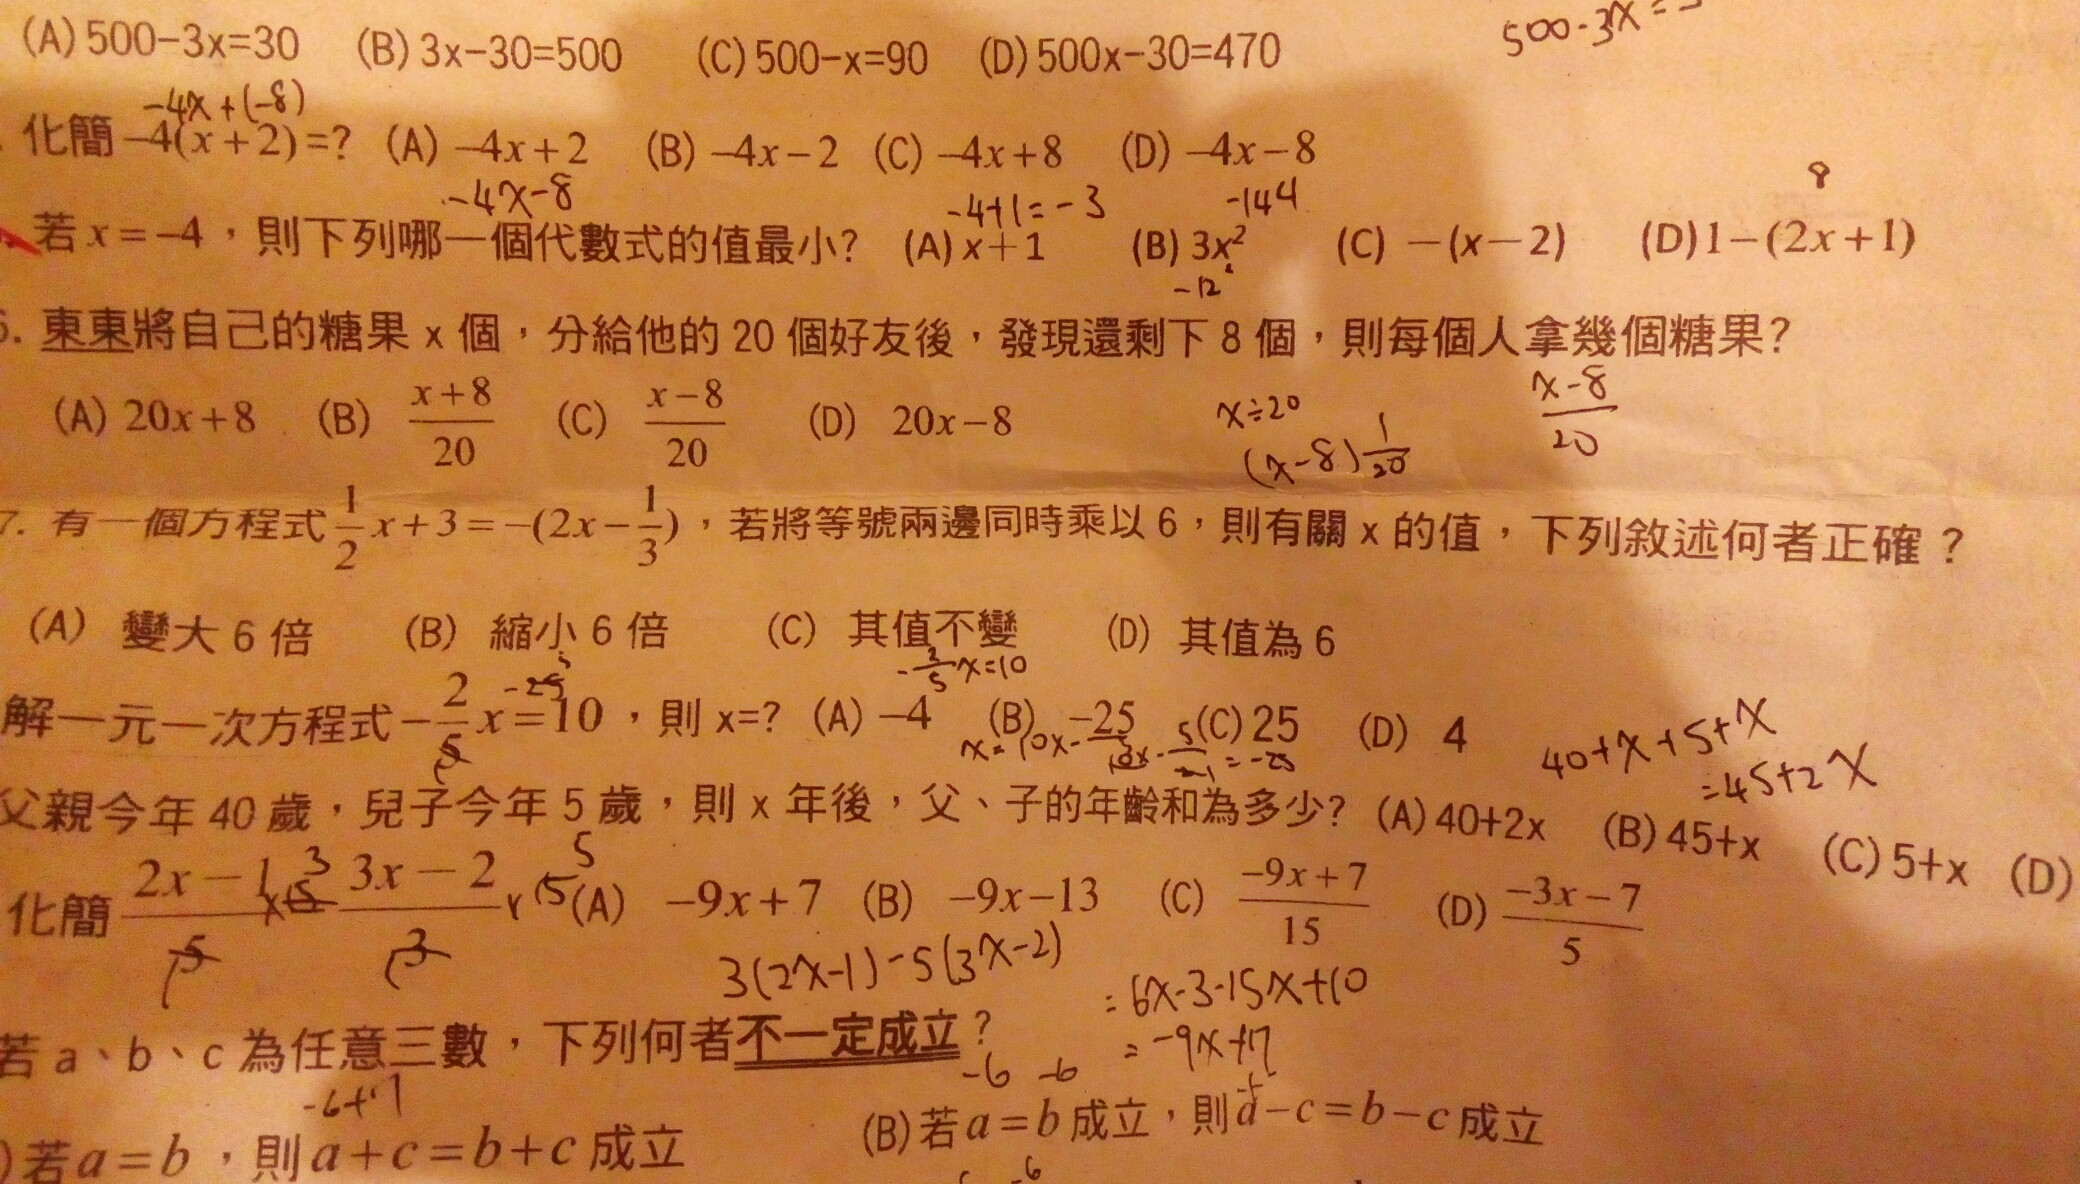 (A) 500-3x=30 (B) 3x-30=500 (C) 500-x=90 (D) 500x-30=470
500-3x=
-4x+(-8)
化簡 -4(x+2)=? (A) -4x+2 (B) -4x-2 (C) -4x+8 (D) -4x-8
-4x-8 -4+1=-3 -144 8
若 x=-4，則下列哪一個代數式的值最小? (A) x+1 (B) 3x² (C) -(x-2) (D) 1-(2x+1)
-12
6. 東東將自己的糖果 x 個，分給他的 20 個好友後，發現還剩下 8 個，則每個人拿幾個糖果?
(A) 20x+8 (B) (x+8)/20 (C) (x-8)/20 (D) 20x-8
x÷20 (x-8)/20
(x-8) 1/20
7. 有一個方程式 1/2 x+3=-(2x-1/3)，若將等號兩邊同時乘以 6，則有關 x 的值，下列敘述何者正確？
(A) 變大 6 倍 (B) 縮小 6 倍 (C) 其值不變 (D) 其值為 6
-25 -2/5 x=10
解一元一次方程式 -2/5 x=10，則 x=? (A) -4 (B) -25 (C) 25 (D) 4
40+x+5+x
=45+2x
父親今年 40 歲，兒子今年 5 歲，則 x 年後，父、子的年齡和為多少? (A) 40+2x (B) 45+x (C) 5+x (D)
化簡 (2x-1)/5 - (3x-2)/3 (A) -9x+7 (B) -9x-13 (C) (-9x+7)/15 (D) (-3x-7)/5
3(2x-1)-5(3x-2)
=6x-3-15x+10
=-9x+7
若 a、b、c 為任意三數，下列何者不一定成立？
-6 -6
)若 a=b，則 a+c=b+c 成立 (B) 若 a=b 成立，則 a-c=b-c 成立